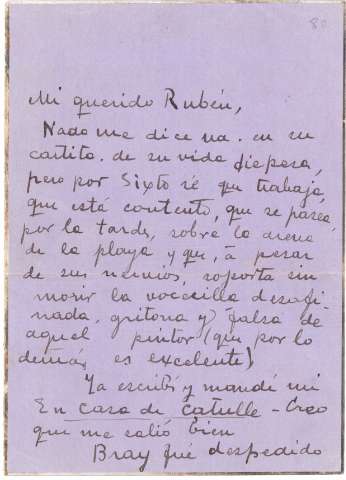 80
Mi querido Rubén,
Nada me dice na. en su
cartita. de su vida diepesa,
pero por Sixto sé que trabaja
que está contento, que se pasea
por la tarde, sobre la arena
de la playa y que, à pesar
de sus nervios, soporta sin
morir la vocecilla desafi-
nada, gritona y falsa de
aquel pintor (que por lo
demás es excelente)
Ya escribí y mandé mi
En casa de Catulle - Creo
que me salió bien
Bray fué despedido